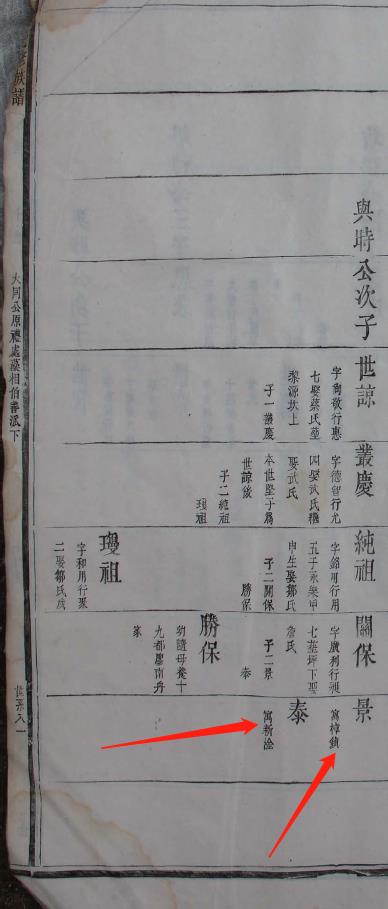 族譜
大同公原禮處藻相伯睿派下
與時公次子
世諒
字
敬行惠
七娶蔡氏葬
黎源坎上
子一叢慶
叢慶
字德智行九
四娶武氏
娶武氏
本世堅子為
世諒後
子二純祖
瓊祖
純祖
字銘可行用
五子永樂甲
申生娶鄒氏
子二關保
勝保
瓊祖
字和用行聚
二娶鄒氏
關保
字廣利行
七葬坪下娶
詹氏
子二景
泰
勝保
幼隨母養十
九都廖南丹
家
景
寓樟鎮
泰
寓新淦